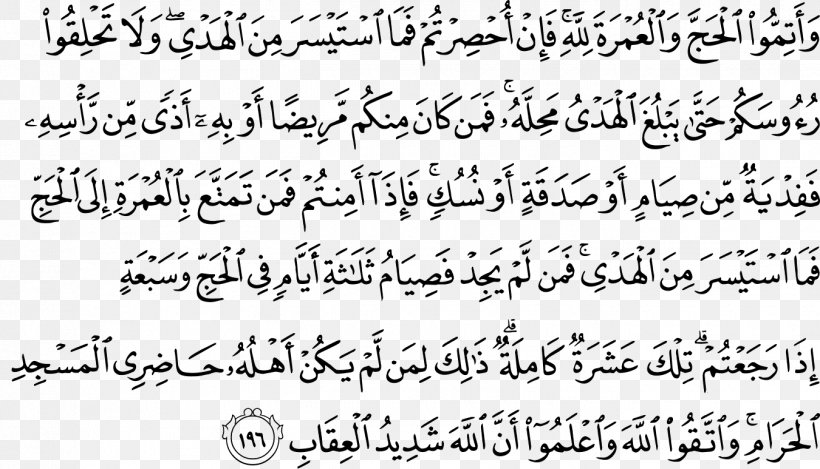 وَأَتِمُّوا۟ ٱلْحَجَّ وَٱلْعُمْرَةَ لِلَّهِ ۚ فَإِنْ أُحْصِرْتُمْ فَمَا ٱسْتَيْسَرَ مِنَ ٱلْهَدْىِ ۖ وَلَا تَحْلِقُوا۟
رُءُوسَكُمْ حَتَّىٰ يَبْلُغَ ٱلْهَدْىُ مَحِلَّهُۥ ۚ فَمَن كَانَ مِنكُم مَّرِيضًا أَوْ بِهِۦٓ أَذًى مِّن رَّأْسِهِۦ
فَفِدْيَةٌ مِّن صِيَامٍ أَوْ صَدَقَةٍ أَوْ نُسُكٍ ۚ فَإِذَآ أَمِنتُمْ فَمَن تَمَتَّعَ بِٱلْعُمْرَةِ إِلَى ٱلْحَجِّ
فَمَا ٱسْتَيْسَرَ مِنَ ٱلْهَدْىِ ۚ فَمَن لَّمْ يَجِدْ فَصِيَامُ ثَلَـٰثَةِ أَيَّامٍ فِى ٱلْحَجِّ وَسَبْعَةٍ
إِذَا رَجَعْتُمْ ۗ تِلْكَ عَشَرَةٌ كَامِلَةٌ ۗ ذَٰلِكَ لِمَن لَّمْ يَكُنْ أَهْلُهُۥ حَاضِرِى ٱلْمَسْجِدِ
ٱلْحَرَامِ ۚ وَٱتَّقُوا۟ ٱللَّهَ وَٱعْلَمُوٓا۟ أَنَّ ٱللَّهَ شَدِيدُ ٱلْعِقَابِ ١٩٦